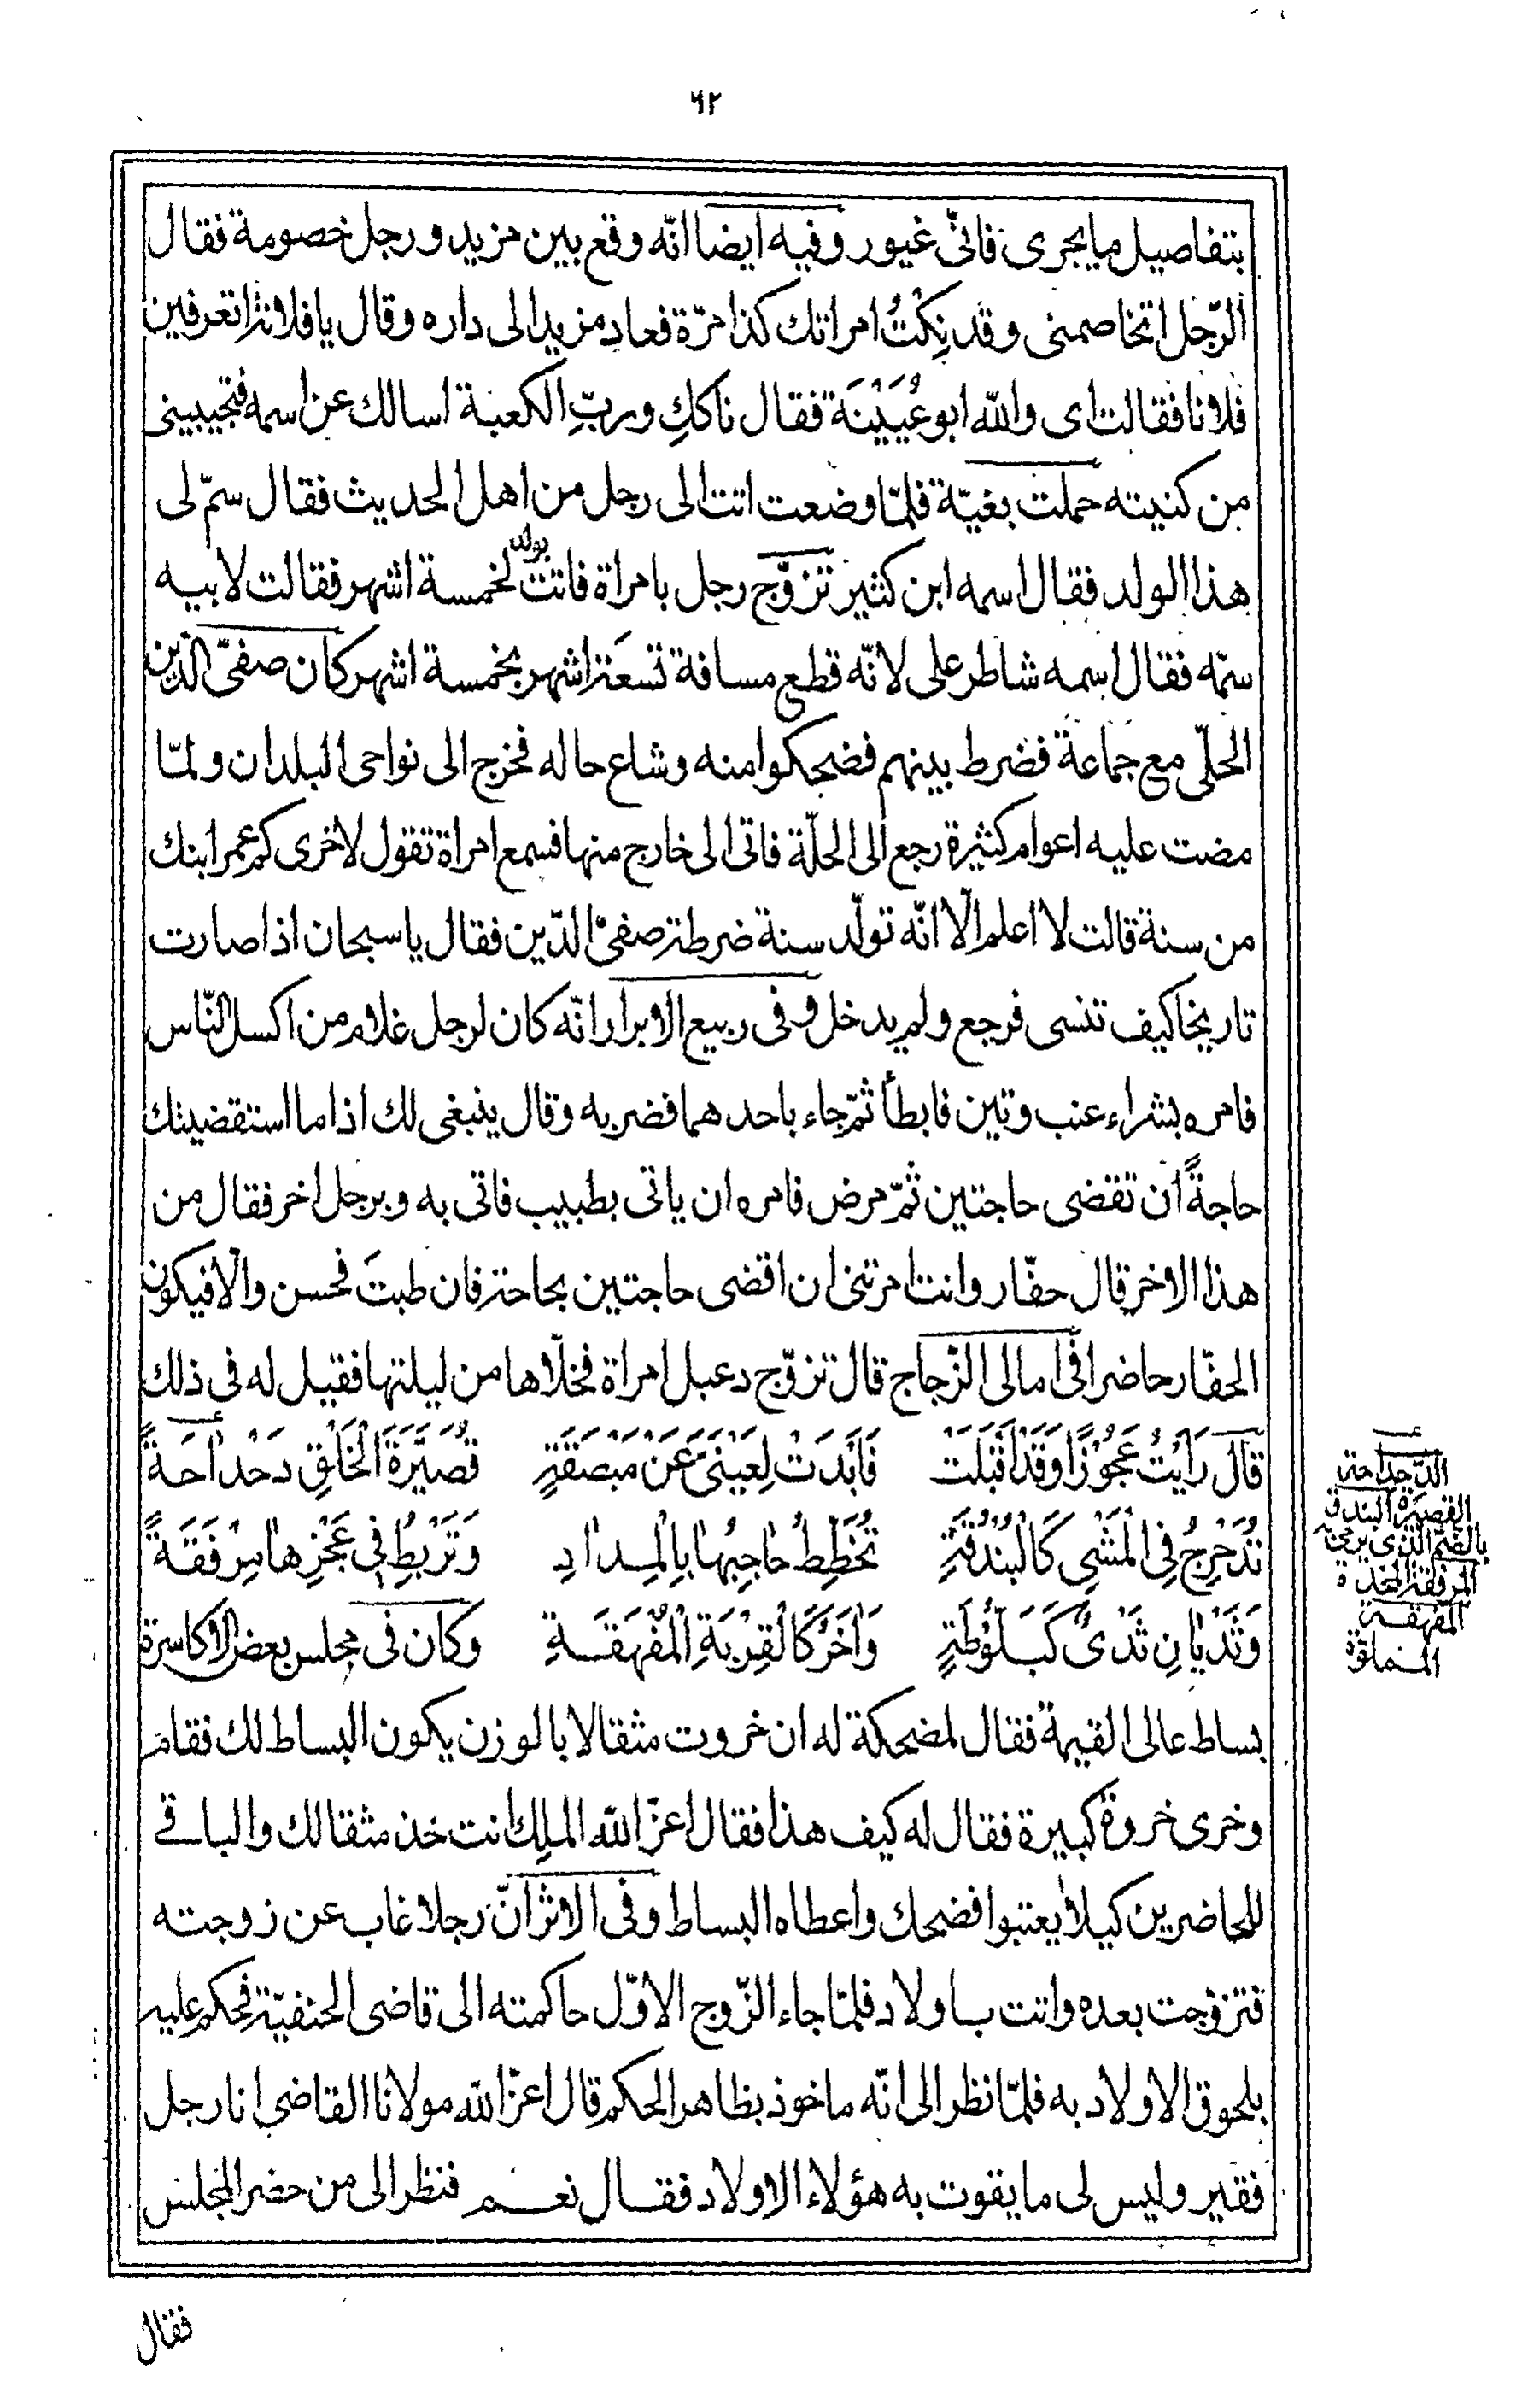 ٦٢
بتفاصيل ما يجرى فانّى غيور وفيه ايضا انّه وقع بين مزيد ورجل خصومة فقال
الرّجل اتخاصمنى وقد نِكْتُ امراتك كذا مرّة فعاد مزيد الى داره وقال يا فلانة اتعرفين
فلانا فقالت اى واللّه ابو عُيَيْنَة فقال ناككِ وربِّ الكعبة اسالك عن اسمه فتجيبينى
من كنيته حملت بغيّة فلمّا وضعت اتت الى رجل من اهل الحديث فقال سمّ لى
هذا الولد فقال اسمه ابن كثير تزوّج رجل بامراة فاتت بولد لخمسة اشهر فقالت لابيه
سمّه فقال اسمه شاطر على لانّه قطع مسافة تسعَة اشهر بخمسة اشهر كان صفىّ الدّين
الحلّى مع جماعة فضرط بينهم فضحكوا منه وشاع حاله فخرج الى نواحى البلدان ولمّا
مضت عليه اعوام كثيرة رجع الى الحلّة فاتى الى خارج منها فسمع امراة تقول لاخرى كم عمر ابنك
من سنة قالت لا اعلم الّا انّه تولّد سنة ضرطة صفىّ الدّين فقال يا سبحان اذا صارت
تاريخا كيف تنسى فرجع ولم يدخل وفى ربيع الابرار انّه كان لرجل غلام من اكسل النّاس
فامره بشراء عنب وتين فابطأ ثمّ جاء باحدهما فضربه وقال ينبغى لك اذا ما استقضيتك
حاجةً ان تقضى حاجتين ثمّ مرض فامره ان ياتى بطبيب فاتى به وبرجل اخر فقال من
هذا الاخر قال حفّار وانت امرتنى ان اقضى حاجتين بحاجة فان طبتَ فحسن والّا فيكون
الحفّار حاضرا فى امالى الزّجاج قال تزوّج دعبل امراة فخلّاها من ليلتها فقيل له فى ذلك
قال رَاَيْتُ عَجُوْزًا وَقَدْ اَقْبَلَتْ فَاَبْدَتْ لِعَيْنَىَّ عَنْ مَبْصَقَةٍ قُصَيَّرَةَ الْخَلْقِ دَحْدَاحَةً
تُدَحْرِجُ فِى الْمَشْىِ كَالْبُنْدُقَةِ تُخَطِّطُ حَاجِبُهَا بِالْمِدَادِ وَتَرْبُطِ فِى عَجْزِهَا مِرْفَقَةً
وَثَدْيَانِ ثَدْىٌ كَبَلُّوْطَةٍ وَاٰخَرُ كَالْقِرْبَةِ الْمُفْهَقَةِ وكان فى مجلس بعض الاكاسرة
بساط عالى القيمة فقال لمضحكة له ان خروت مثقالا بالوزن يكون البساط لك فقام
وخرى خروة كبيرة فقال له كيف هذا فقال اعزّ اللّه الملِك انت خذ مثقالك والباقے
للحاضرين كيلا يعتبوا فضحك واعطاه البساط وفى الاثر انّ رجلا غاب عن زوجته
فتزوّجت بعده واتت باولاد فلمّا جاء الزّوج الاوّل حاكمته الى قاضى الحنفيّة فحكم عليه
بلحوق الاولاد به فلمّا نظر الى انّه ماخوذ بظاهر الحكم قال اعزّ اللّه مولانا القاضى انا رجل
فقير وليس لى ما يقوت به هؤلاء الاولاد فقال نعم فنظر الى من حضر المجلس
فقال
الدّحداحة
القصيرة البندق
بالضّم الّذى يرمى به
المرفقة المخدة
المفهقة
المملوّة